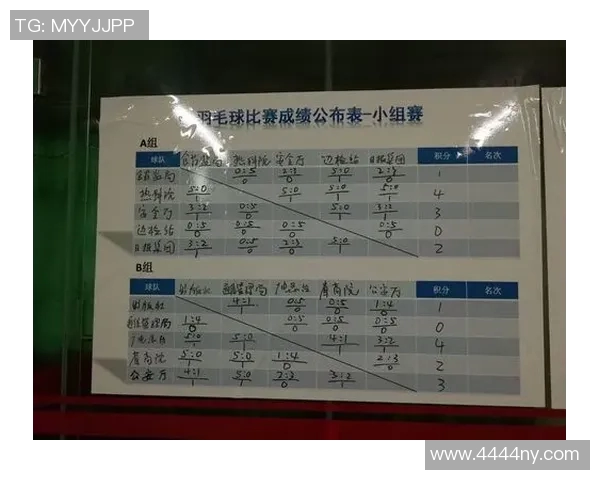 TG: MYYJJPP
羽毛球比赛成绩公布表-小组赛
A组
球队 食药监局 热科院 安全厅 边检站 日报集团 积分 名次
食药监局 0:5 0 2:3 0 5:0 1 2:3 0 1
热科院 5:0 1 5:0 1 5:0 1 5:0 1 4
安全厅 3:2 1 0:5 0 5:0 1 3:2 1 3
边检站 0:5 0 0:5 0 0:5 0 0:5 0 0
日报集团 3:2 1 0:5 0 2:3 0 5:0 1 2
B组
球队 出版社 管理局 公安厅 积分 名次
出版社 4:1 1 0:5 0 0:5 0 1:4 0 1
管理局 1:4 0 0:5 0 0:5 0 0:5 0 0
5:0 1 5:0 1 4:1 1 3:2 1 4
5:0 1 5:0 1 1:4 0 2:3 0 2
公安厅 4:1 1 5:0 2:3 0 3:2 1 3
www.4444ny.com